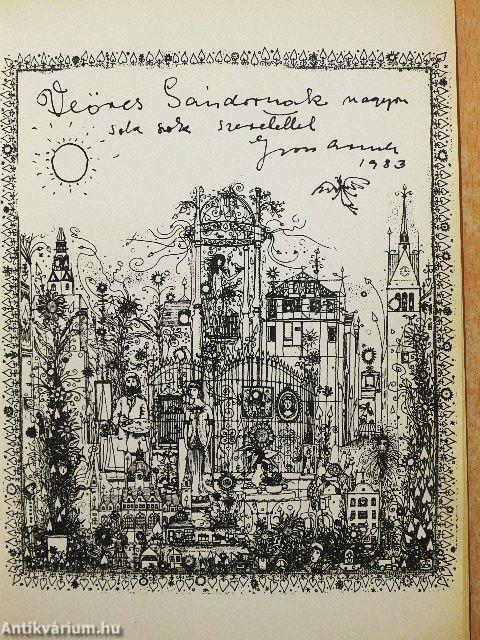 Weöres Sándornak nagyon
sok sok szeretettel
Gross Arnold
1983
Antikvárium.hu